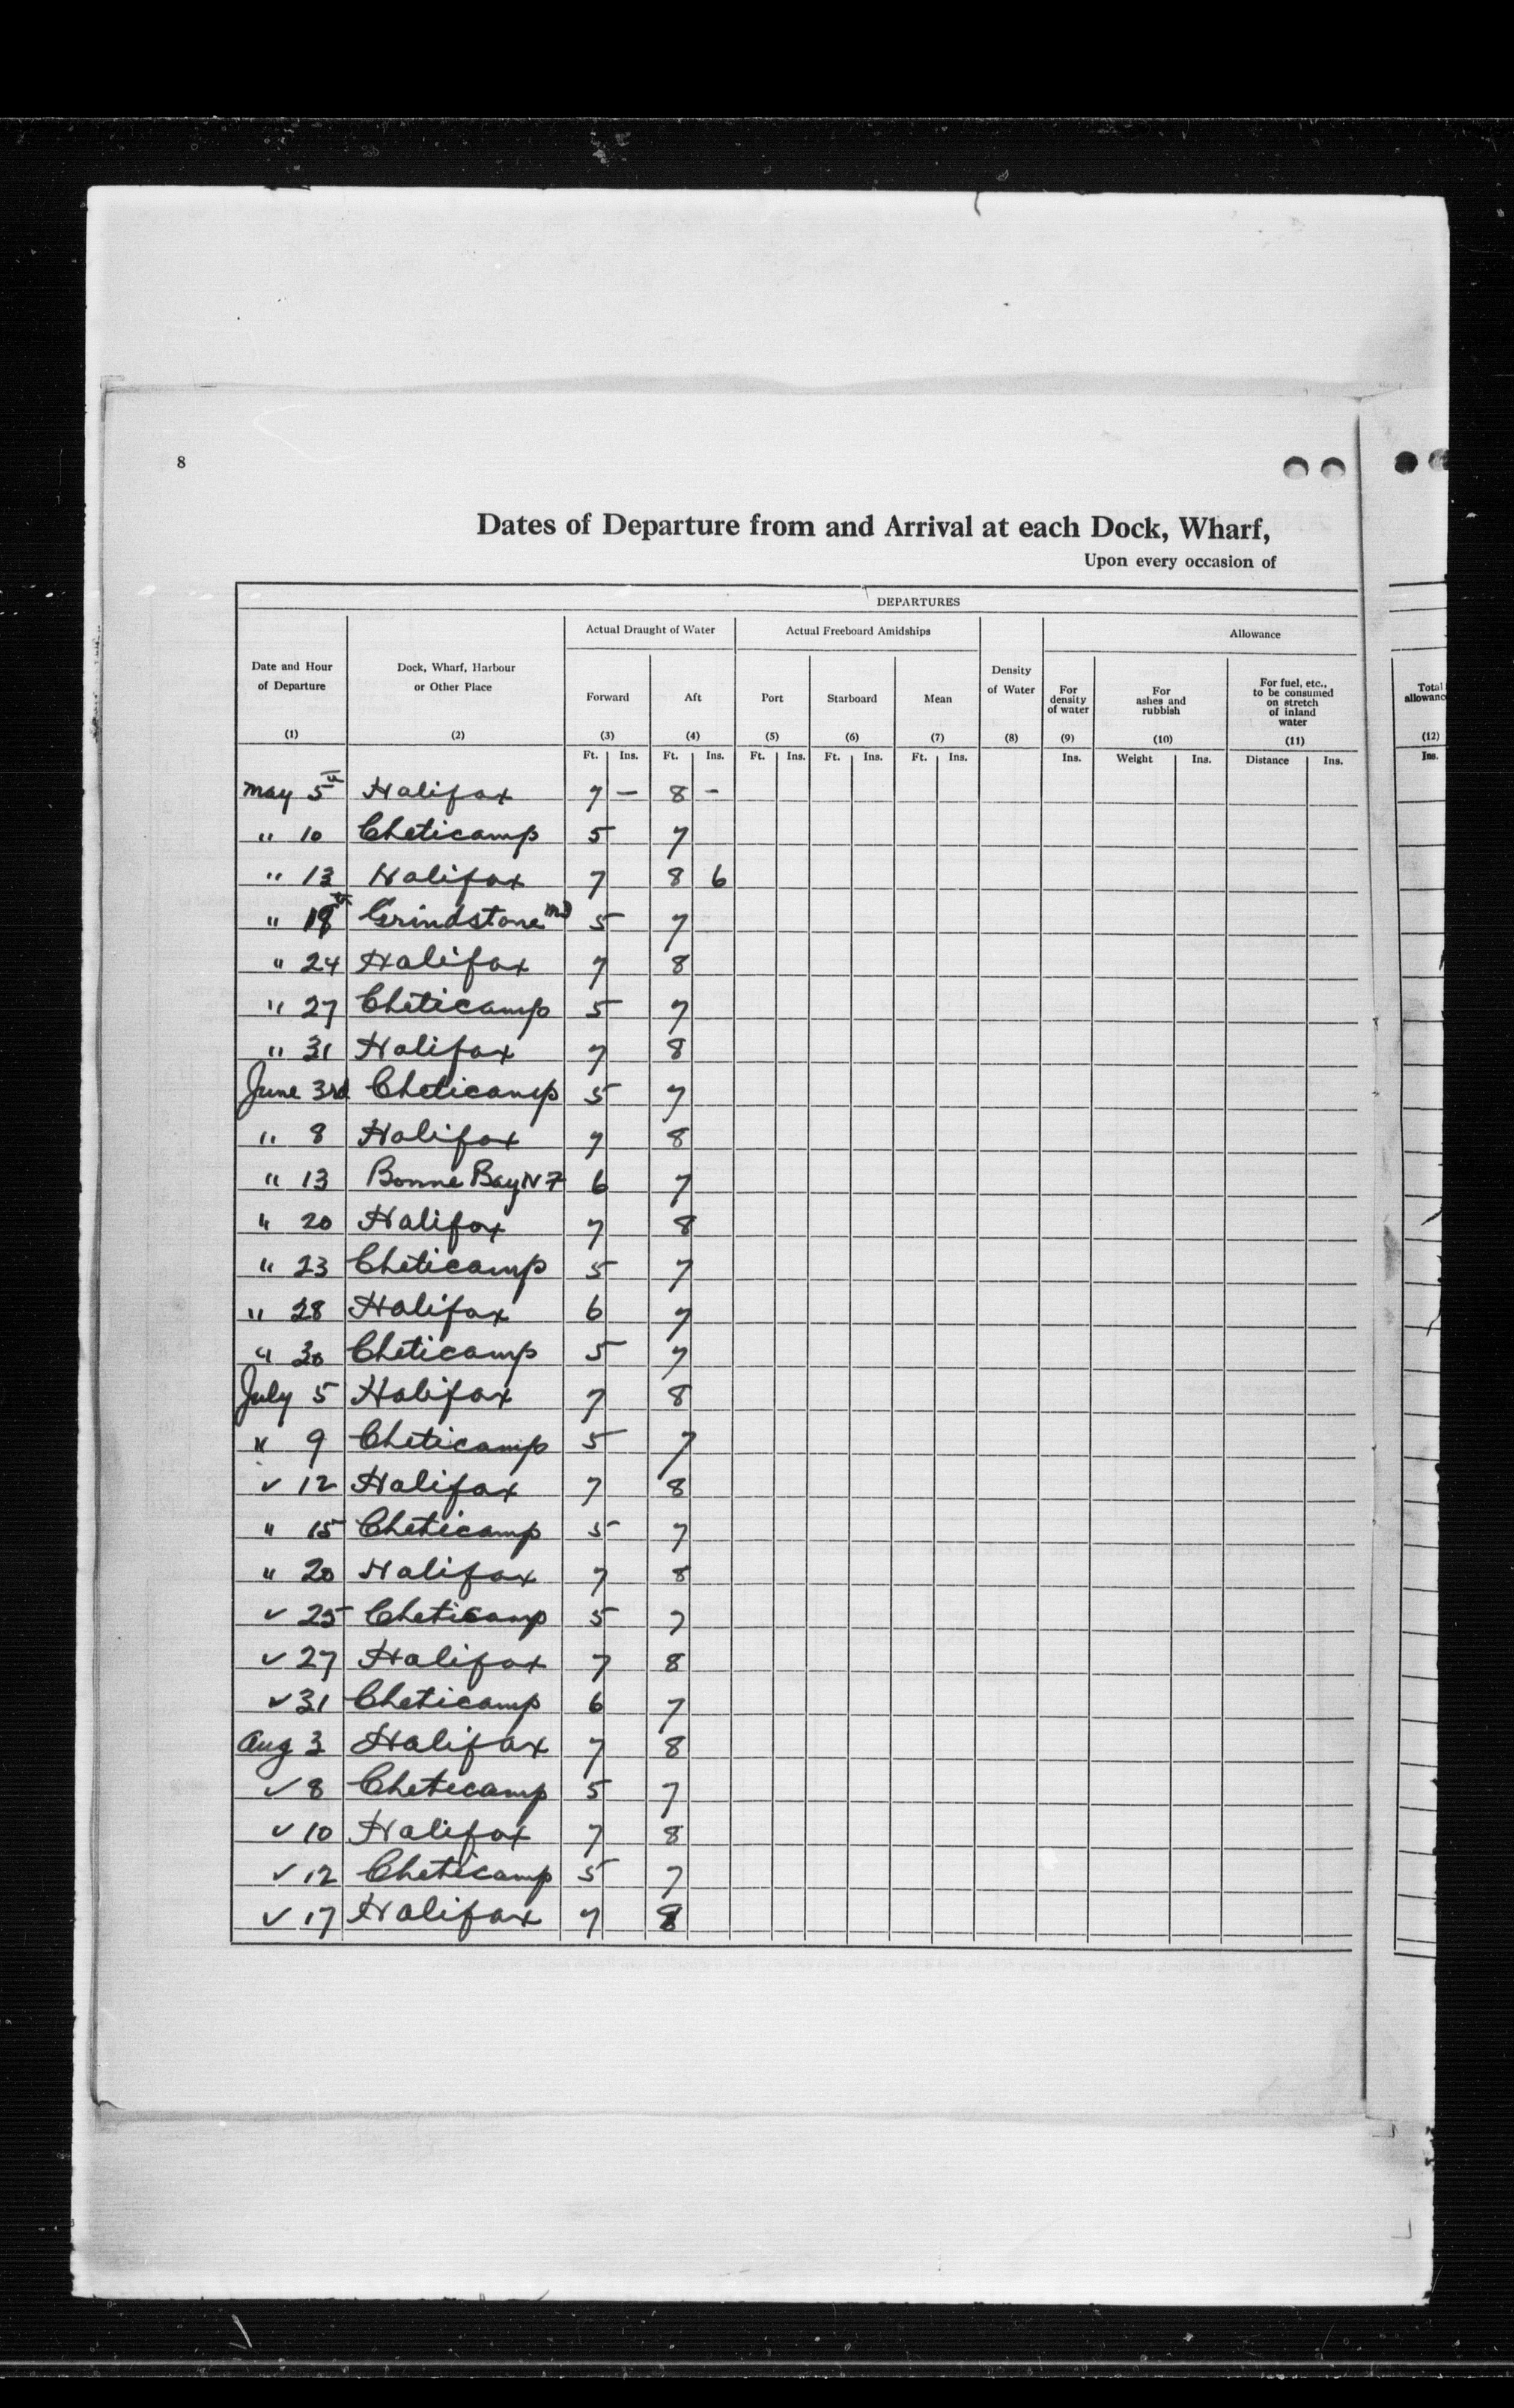 8
Dates of Departure from and Arrival at each Dock, Wharf,
Upon every occasion of
DEPARTURES
Actual Draught of Water Actual Freeboard Amidships Allowance
Date and Hour of Departure Dock, Wharf, Harbour or Other Place Forward Aft Port Starboard Mean Density of Water For density of water For ashes and rubbish For fuel, etc., to be consumed on stretch of inland water Total allowance
(1) (2) (3) (4) (5) (6) (7) (8) (9) (10) (11) (12)
Ft. Ins. Ft. Ins. Ft. Ins. Ft. Ins. Ft. Ins. Ins. Weight Ins. Distance Ins. Ins.
May 5th Halifax 7 – 8 –
" 10 Cheticamp 5 7
" 13 Halifax 7 8 6
" 18th Grindstone 5 7
" 24 Halifax 7 8
" 27 Cheticamp 5 7
" 31 Halifax 7 8
June 3rd Cheticamp 5 7
" 8 Halifax 7 8
" 13 Bonne Bay NF 6 7
" 20 Halifax 7 8
" 23 Cheticamp 5 7
" 28 Halifax 6 7
" 30 Cheticamp 5 7
July 5 Halifax 7 8
" 9 Cheticamp 5 7
" 12 Halifax 7 8
" 15 Cheticamp 5 7
" 20 Halifax 7 8
" 25 Cheticamp 5 7
" 27 Halifax 7 8
" 31 Cheticamp 6 7
Aug 3 Halifax 7 8
" 8 Cheticamp 5 7
" 10 Halifax 7 8
" 12 Cheticamp 5 7
" 17 Halifax 7 8